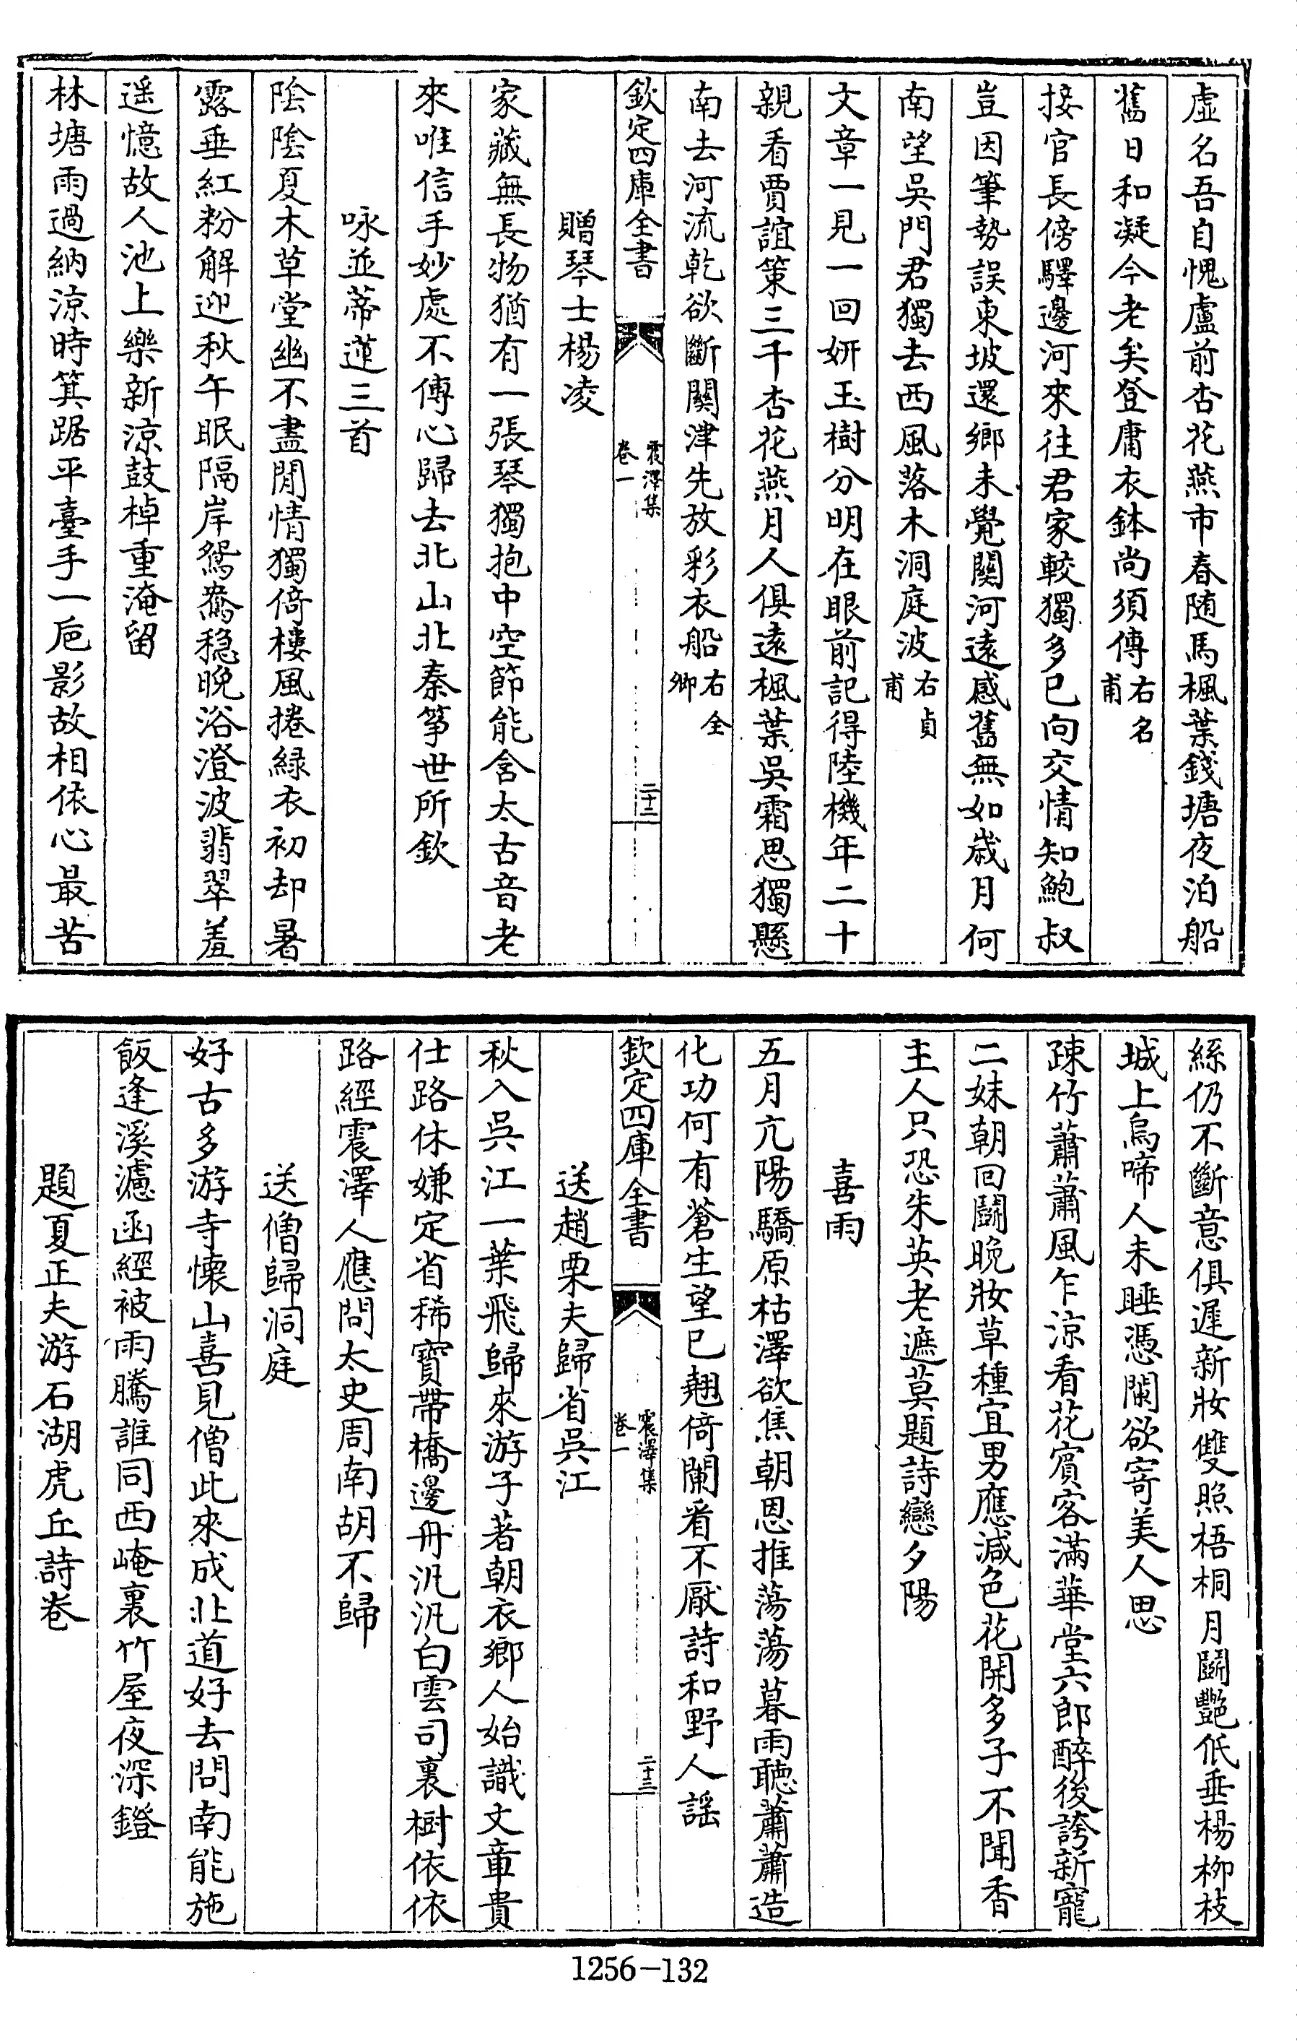 虛名吾自愧盧前杏花燕市春随馬楓葉錢塘夜泊船
舊日和凝今老矣登庸衣鉢尚須傳右名甫
接官長傍驛邊河來往君家較獨多已向交情知鮑叔
豈因筆勢誤東坡還鄉未覺關河遠感舊無如歲月何
南望吳門君獨去西風落木洞庭波右貞甫
文章一見一回妍玉樹分明在眼前記得陸機年二十
親看賈誼策三千杏花燕月人俱遠楓葉吳霜思獨懸
南去河流乾欲斷關津先放彩衣船右全卿
欽定四庫全書
震澤集
卷一
二十二
贈琴士楊凌
家藏無長物猶有一張琴獨抱中空節能含太古音老
來唯信手妙處不傳心歸去北山北秦箏世所欽
咏並蒂蓮三首
陰陰夏木草堂幽不盡閒情獨倚樓風捲緑衣初却暑
露垂紅粉解迎秋午眠隔岸鴛鴦穏晩浴澄波翡翠羞
遥憶故人池上樂新涼鼓棹重淹留
林塘雨過納涼時箕踞平臺手一巵影故相依心最苦
絲仍不斷意俱遲新妝雙照梧桐月鬭艷低垂楊柳枝
城上烏啼人未睡憑闌欲寄美人思
疎竹蕭蕭風乍涼看花賓客滿華堂六郎醉後誇新寵
二妹朝回鬭晚妝草種宜男應減色花開多子不聞香
主人只恐朱英老遮莫題詩戀夕陽
喜雨
五月亢陽驕原枯澤欲焦朝恩推蕩蕩暮雨聽蕭蕭造
化功何有蒼生望已翹倚闌看不厭詩和野人謡
欽定四庫全書
震澤集
卷一
二十三
送趙栗夫歸省吳江
秋入吳江一葉飛歸來游子著朝衣鄉人始識文章貴
仕路休嫌定省稀寶帶橋邊舟汎汎白雲司裏樹依依
路經震澤人應問太史周南胡不歸
送僧歸洞庭
好古多游寺懷山喜見僧此來成北道好去問南能施
飯逢溪濾函經被雨騰誰同西崦裏竹屋夜深鐙
題夏正夫游石湖虎丘詩卷
1256-132